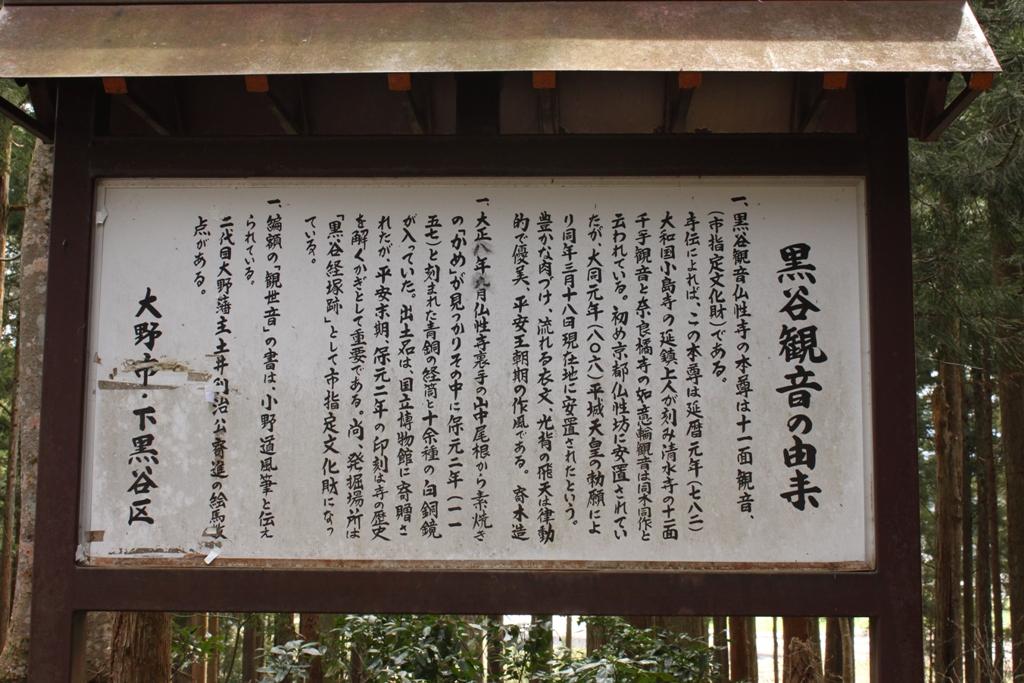 黒谷観音の由来
一、黒谷観音仏性寺の本尊は十一面観音、
(市指定文化財)である。
寺伝によれば、この本尊は延暦元年(七八二)
大和国小島寺の延鎮上人が刻み清水寺の十一面
千手観音と奈良橘寺の如意輪観音は同木同作と
云われている。初め京都仏性坊に安置されてい
たが、大同元年(八〇六)平城天皇の勅願によ
り同年三月十八日現在地に安置されたという。
豊かな肉づけ、流れる衣文、光背の飛天は律動
的で優美、平安王朝期の作風である。寄木造
一、大正八年九月仏性寺裏手の山中尾根から素焼き
の「かめ」が見つかりその中に保元二年(一一
五七)と刻まれた青銅の経筒と十余種の白銅鏡
が入っていた。出土品は、国立博物館に寄贈さ
れたが、平安末期、保元二年の印刻は寺の歴史
を解くかぎとして重要である。尚、発掘場所は
「黒谷経塚跡」として市指定文化財になっ
ている。
一、編額の「観世音」の書は、小野道風筆と伝え
られている。
二代目大野藩主、土井利治公寄進の絵馬数
点がある。
大野市・下黒谷区